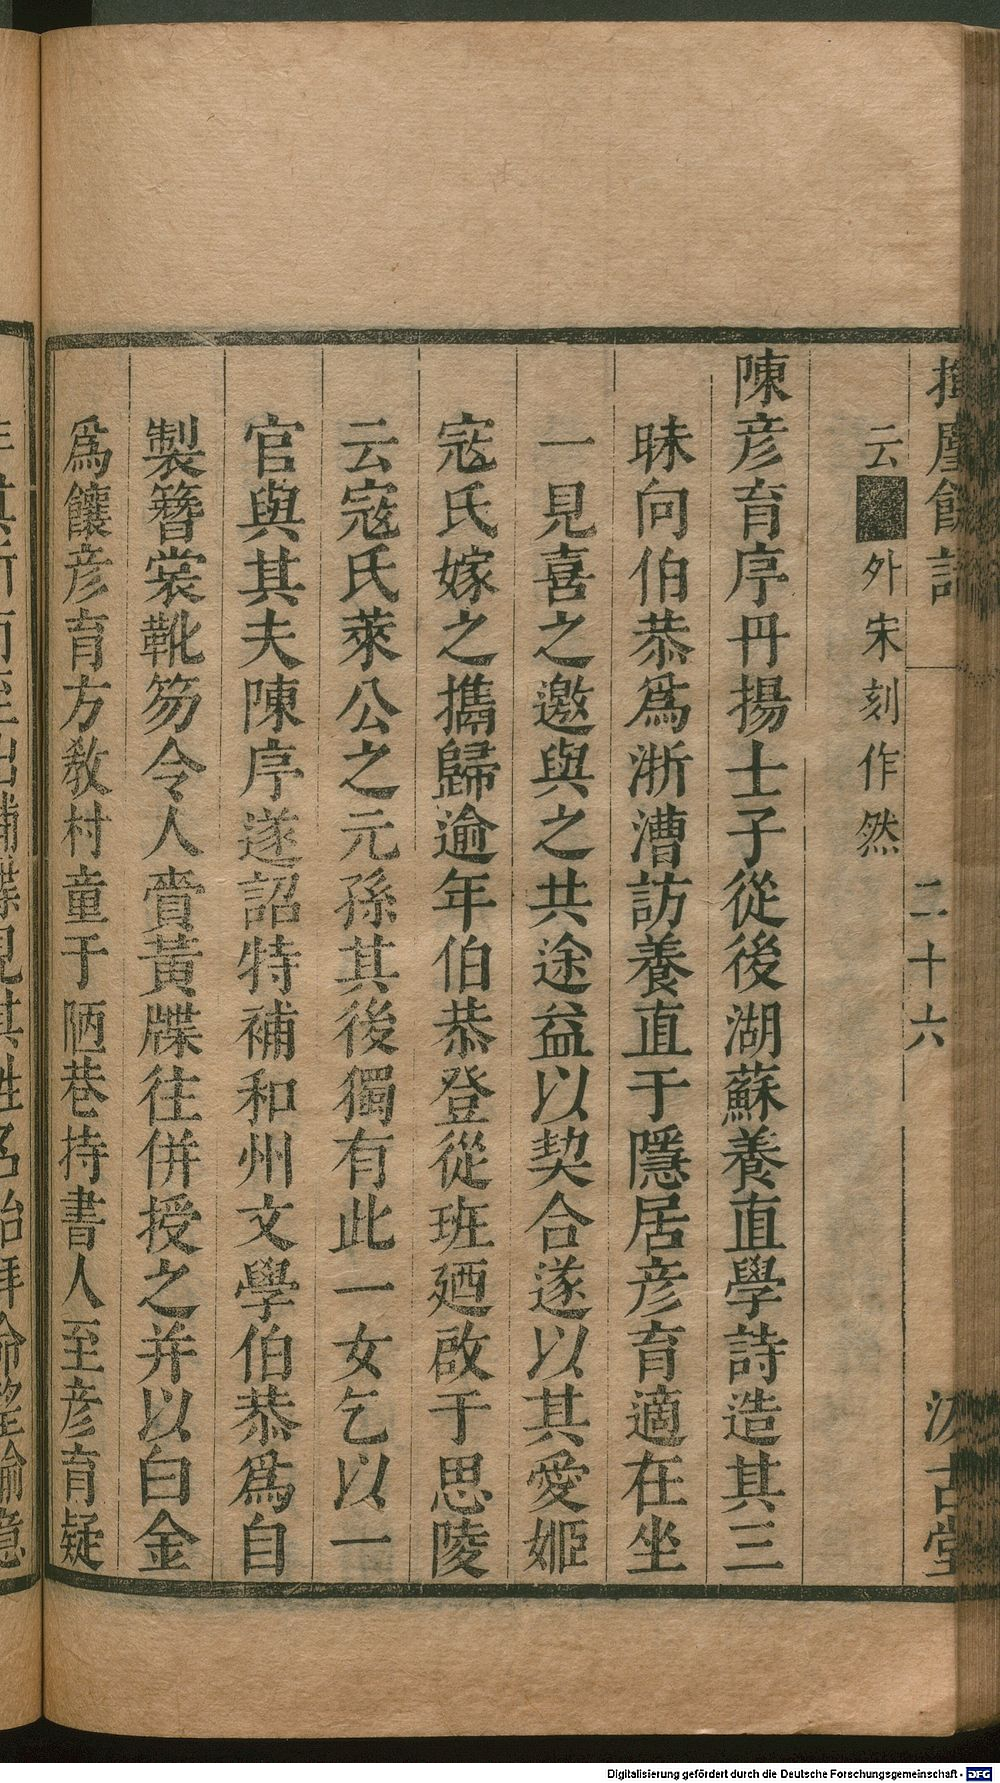 揮麈餘話 二十六 汲古堂
云■外宋刻作然
陳彦育序丹揚士子從後湖蘇養直學詩造其三
昧向伯恭爲浙漕訪養直于隱居彦育適在坐
一見喜之邀與之共途益以契合遂以其愛姬
寇氏嫁之攜歸逾年伯恭登從班廼啟于思陵
云寇氏萊公之元孫其後獨有此一女乞以一
官與其夫陳序遂詔特補和州文學伯恭爲自
製簪裳靴笏令人賫黃牒往併授之并以白金
爲饟彦育方教村童于陋巷持書人至彦育疑
Digitalisierung gefördert durch die Deutsche Forschungsgemeinschaft - DFG